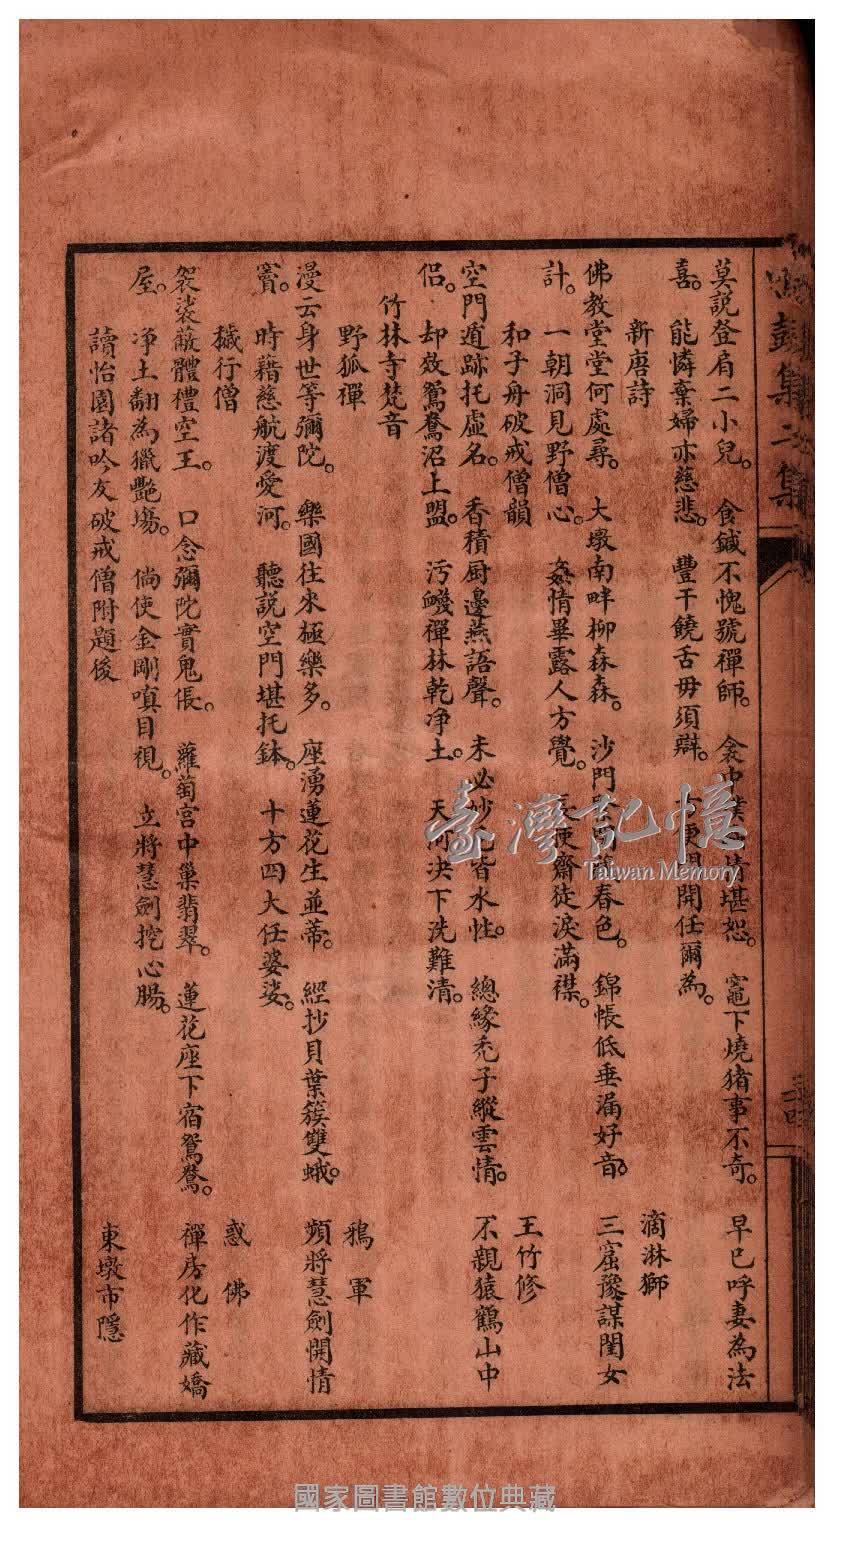 鼓集二集
莫説登肩二小兒。食鍼不愧號禪師。衾中 情堪恕。竈下燒猪事不奇。早已呼妻為法
喜。能憐棄婦亦慈悲。豐干饒舌毋須辯。方便門開任爾為。
新唐詩　滴淋獅
佛教堂堂何處尋。大墩南畔柳森森。沙門 春色。錦帳低垂漏好音。三窟豫謀閨女
計。一朝洞見野僧心。姦情畢露人方覺。長使齋徒淚滿襟。
和子舟破戒僧韻　王竹修
空門遁跡托虛名。香積厨邊燕語聲。未必 皆水性。總緣禿子縱雲情。不親猿鶴山中
侶。却效鴛鴦沼上盟。污衊禪林乾净土。天河决下洗難清。
竹林寺梵音
野狐禪　鴉軍
漫云身世等彌陀。樂國往來極樂多。座湧蓮花生並蒂。經抄貝葉簇雙蛾。頻將慧劍開情
竇。時藉慈航渡愛河。聽説空門堪托鉢。十方四大任婆娑。
穢行僧　惑佛
袈裟蔽體禮空王。口念彌陀實鬼倀。蘿蔔宫中巢翡翠。蓮花座下宿鴛鴦。禪房化作藏嬌
屋。净土翻為獵艷塲。倘使金剛嗔目視。立將慧劍挖心腸。
讀怡園諸吟友破戒僧附題後　東墩市隱
臺灣記憶
Taiwan Memory
國家圖書館數位典藏